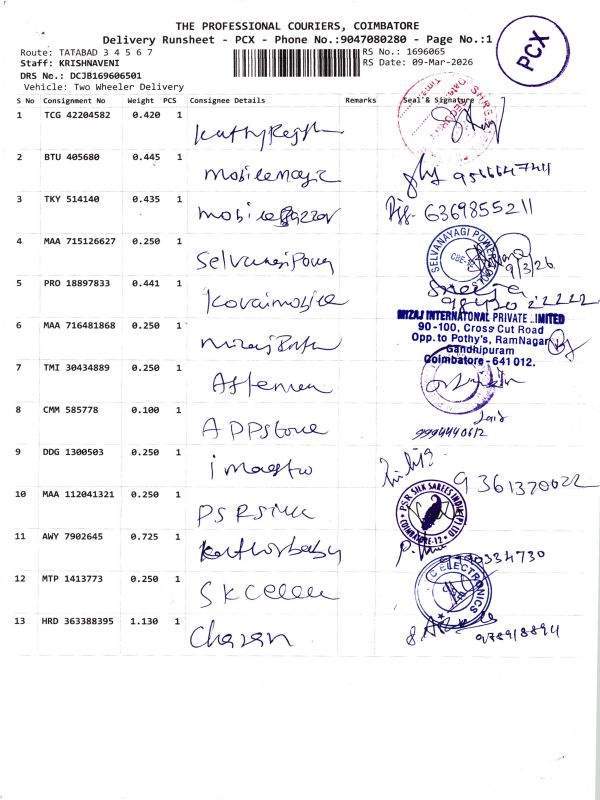 THE PROFESSIONAL COURIERS, COIMBATORE
Delivery Runsheet - PCX - Phone No.:9047080280 - Page No.:1
PCX
Route: TATABAD 3 4 5 6 7
RS No.: 1696065
Staff: KRISHNAVENI
RS Date: 09-Mar-2026
DRS No.: DCJB169606501
Vehicle: Two Wheeler Delivery
S No Consignment No Weight PCS Consignee Details Remarks Seal & Signature
1 TCG 42204582 0.420 1
2 BTU 405680 0.445 1 mobilemagic
3 TKY 514140 0.435 1 mobile 6369855211
4 MAA 715126627 0.250 1 SELVANAYAGI POWER TOOLS CBE 9/3/26
5 PRO 18897833 0.441 1 Kovaimobile
6 MAA 716481868 0.250 1
MIZAJ INTERNATONAL PRIVATE LIMITED
90-100, Cross Cut Road
Opp. to Pothy's, RamNagar
Gandhipuram
Coimbatore - 641 012.
7 TMI 30434889 0.250 1
8 CMM 585778 0.100 1 APPstore
9994440612
9 DDG 1300503 0.250 1 imaestro 9361370022
10 MAA 112041321 0.250 1 PSRsilk PSR SILK SAREES INDIA (P) LTD COIMBATORE-12
11 AWY 7902645 0.725 1
12 MTP 1413773 0.250 1 ELECTRONICS
13 HRD 363388395 1.130 1 Charan